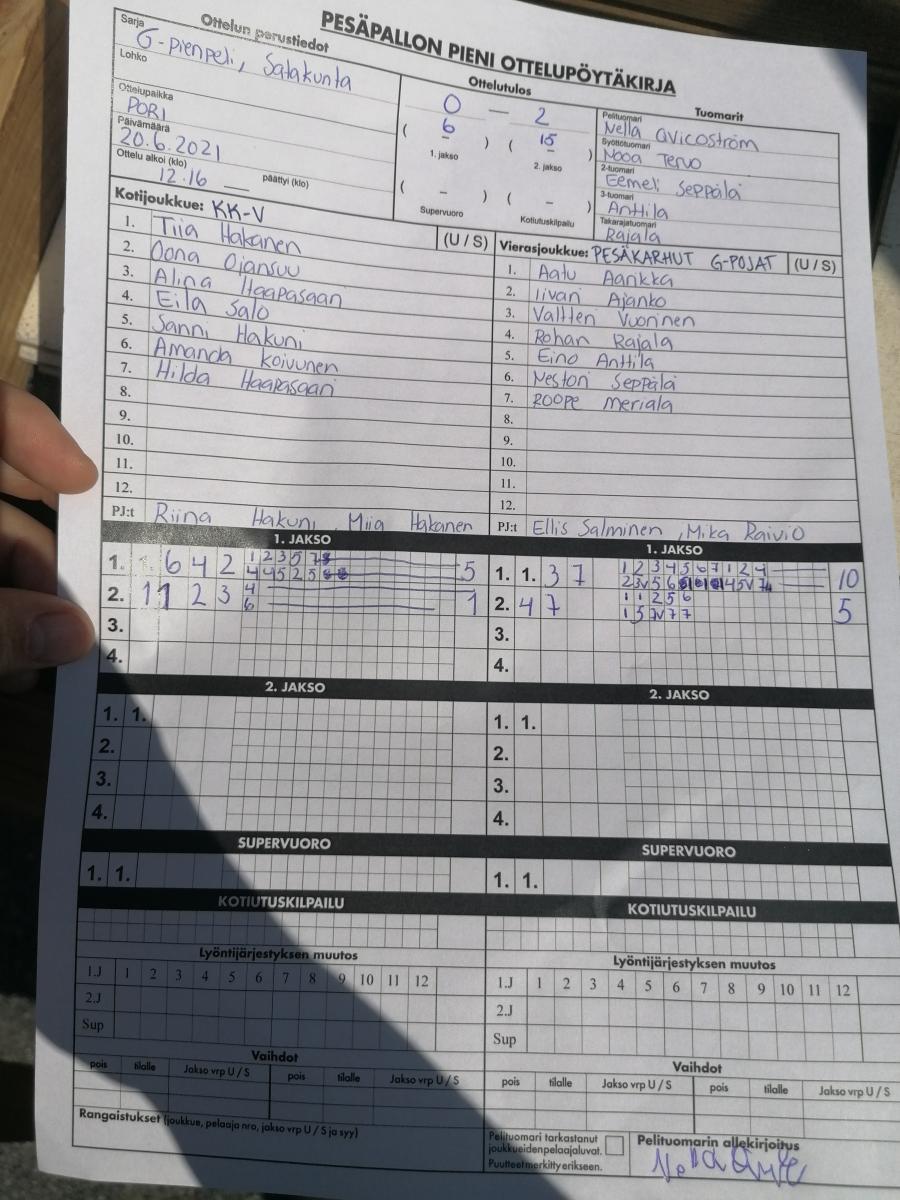 PESÄPALLON PIENI OTTELUPÖYTÄKIRJA
Ottelun perustiedot
Sarja
G-pienpeli, Satakunta
Lohko
Ottelupaikka
PORI
Päivämäärä
20.6.2021
Ottelu alkoi (klo) päättyi (klo)
12.16
Ottelutulos
0 – 2
( 6 – ) ( 15 – )
1. jakso 2. jakso
( – ) ( – )
Supervuoro Kotiutuskilpailu
Tuomarit
Pelituomari
Nella
Syöttötuomari
Nooa Tervo
2-tuomari
Eemeli Seppälä
3-tuomari
Anttila
Takarajatuomari
Rajala
Kotijoukkue: KK-V (U / S)
1. Tiia Hakanen
2. Oona Ojansuu
3. Alina Haapasaari
4. Eila Salo
5. Sanni Hakuni
6. Amanda Koivunen
7. Hilda Haapasaari
8.
9.
10.
11.
12.
PJ:t Riina Hakuni, Miia Hakanen
Vierasjoukkue: PESÄKARHUT G-POJAT (U / S)
1. Aatu Aarikka
2. Iivari Ajanko
3. Valtteri Vuorinen
4. Rohan Rajala
5. Eino Anttila
6. Nestori Seppälä
7. Roope Meriala
8.
9.
10.
11.
12.
PJ:t Ellis Salminen, Mika Raivio
1. JAKSO
1. 1. 6 4 2 5
2. 11 2 3 4 6 1
3.
4.
2. JAKSO
1. 1.
2.
3.
4.
SUPERVUORO
1. 1.
KOTIUTUSKILPAILU
Lyöntijärjestyksen muutos
1.J 1 2 3 4 5 6 7 8 9 10 11 12
2.J
Sup
Vaihdot
pois tilalle Jakso vrp U / S pois tilalle Jakso vrp U / S
1. JAKSO
1. 1. 3 7 1 2 3 4 5 6 7 1 2 4 10
2. 4 7 1 1 2 5 6 5
1 5 7V 7 7
3.
4.
2. JAKSO
1. 1.
2.
3.
4.
SUPERVUORO
1. 1.
KOTIUTUSKILPAILU
Lyöntijärjestyksen muutos
1.J 1 2 3 4 5 6 7 8 9 10 11 12
2.J
Sup
Vaihdot
pois tilalle Jakso vrp U / S pois tilalle Jakso vrp U / S
Rangaistukset (joukkue, pelaaja nro, jakso vrp U / S ja syy)
Pelituomari tarkastanut
joukkueidenpelaajaluvat.
Puutteet merkitty erikseen.
Pelituomarin allekirjoitus